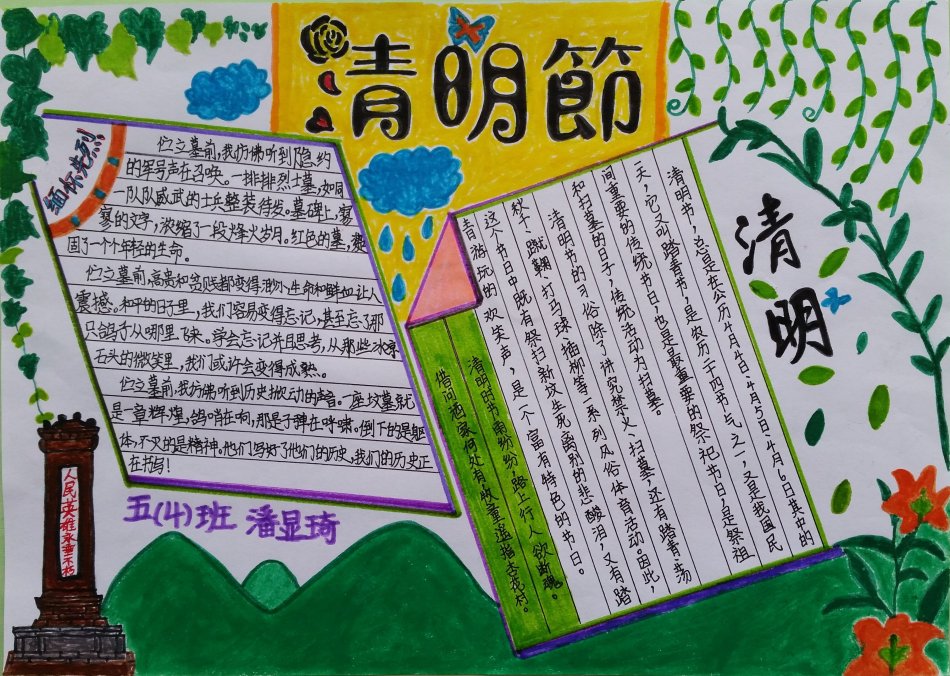 清明節
缅怀先烈
伫立墓前,我仿佛听到隐约
的军号声在召唤。一排排烈士墓,如同
一队队威武的士兵整装待发。墓碑上,寥
寥的文字,浓缩了一段烽火岁月。红色的墓,凝
固了一个个年轻的生命。
伫立墓前,高贵和贫贱都变得泪水,生命和鲜血让人
震撼。和平的日子里,我们容易变得忘记,甚至忘了那
只鸽子从哪里飞来。学会忘记并且思考,从那些冰凉
石头的微笑里,我们或许会变得成熟。
伫立墓前,我仿佛听到历史掀动的声音。一座坟墓就
是一章辉煌,鸽哨在响,那是子弹在呼啸。倒下的是躯
体,不灭的是精神。他们写好了他们的历史,我们的历史正
在书写!
五(4)班 潘显琦
人民英雄永垂不朽
清明
清明节,总是在公历4月4日、4月5日、4月6日其中的
一天,它又叫踏青节,是农历二十四节气之一,又是我国民
间重要的传统节日,也是最重要的祭祀节日,是祭祖
和扫墓的日子,传统活动为扫墓。
清明节的习俗除了讲究禁火、扫墓,还有踏青、荡
秋千、蹴鞠、打马球、插柳等一系列风俗体育活动。因此,
这个节日中既有祭扫新坟生死离别的悲酸泪,又有踏
青游玩的欢笑声,是一个富有特色的节日。
清明时节雨纷纷,路上行人欲断魂。
借问酒家何处有,牧童遥指杏花村。